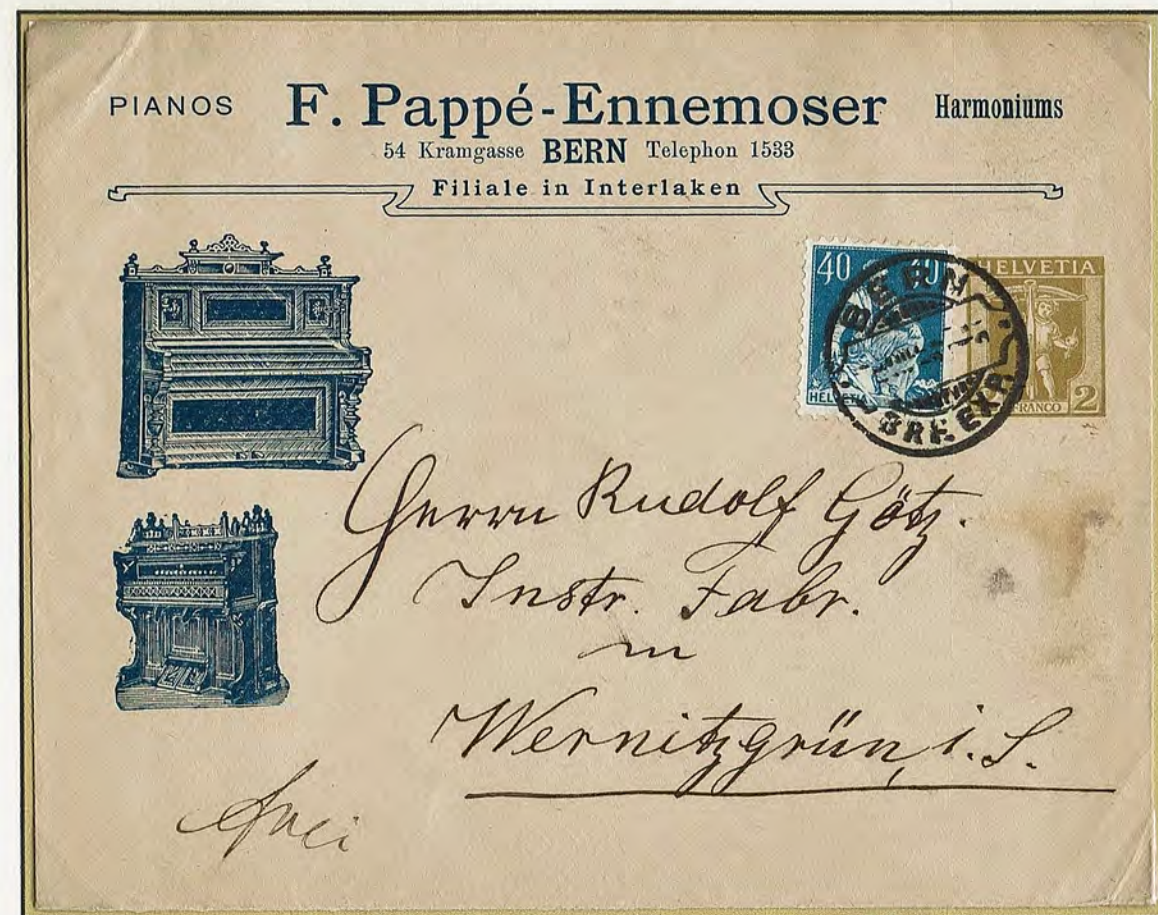 PIANOS F. Pappé-Ennemoser Harmoniums
54 Kramgasse BERN Telephon 1533
Filiale in Interlaken
40 40
HELVETIA
HELVETIA
FRANCO 2
BERN
BRF. EXP.
Herrn Rudolf Götz.
Instr. Fabr.
in
Wernitzgrün, i. S.
frei